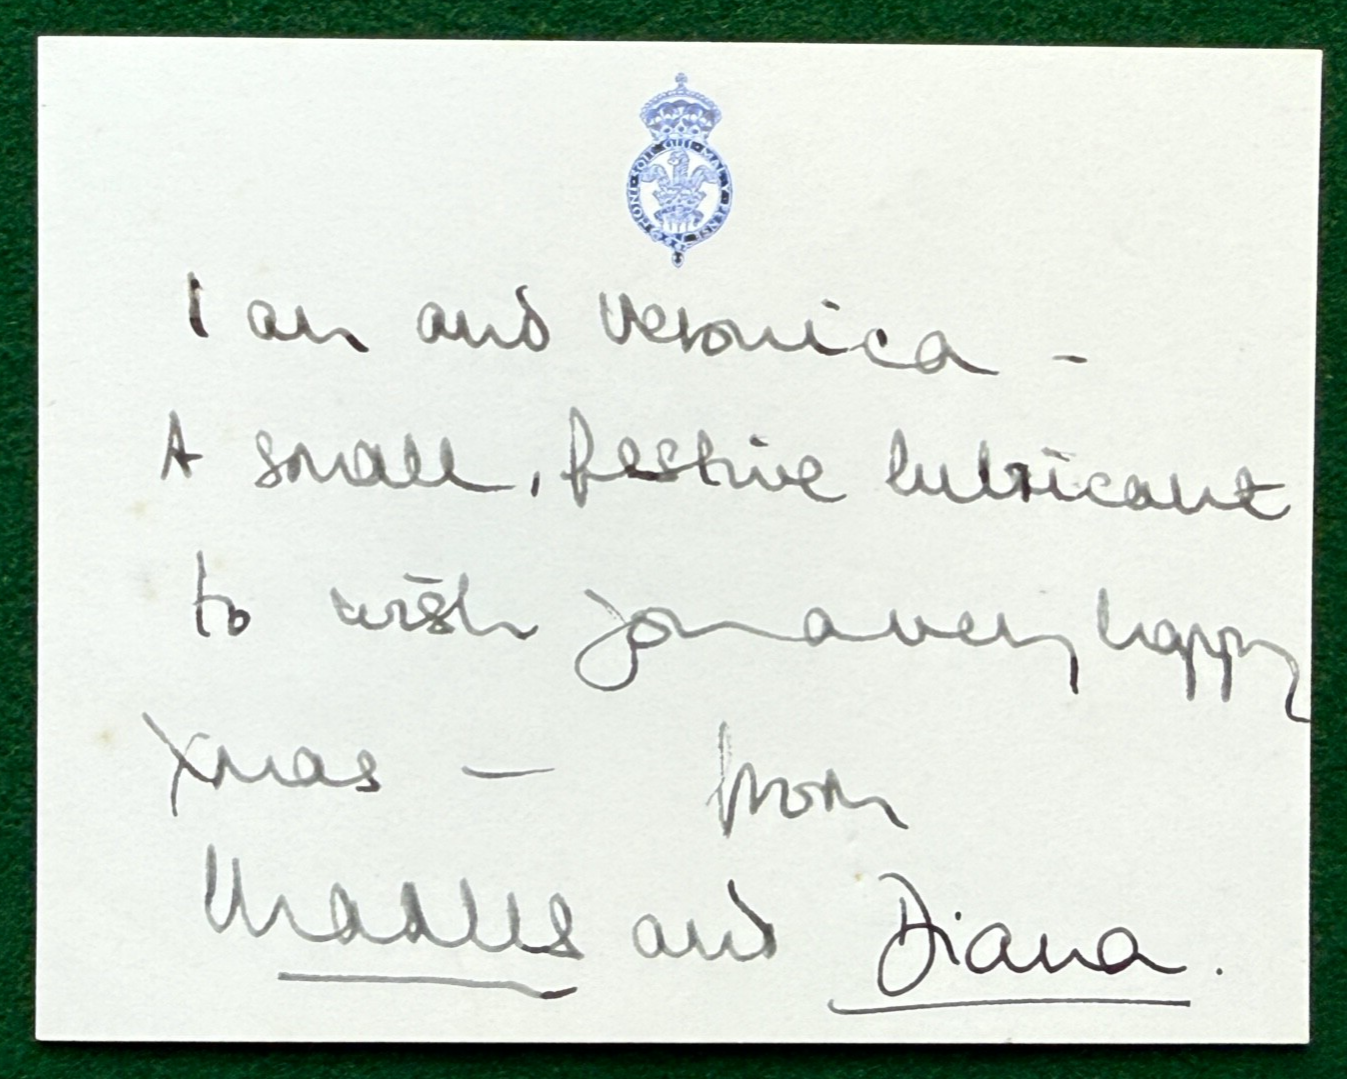 HONI·SOIT·QUI·MAL·Y·PENSE
Ian and Veronica -
A small, festive lubricant
to wish you a very happy
Xmas — from
Charles and Diana.